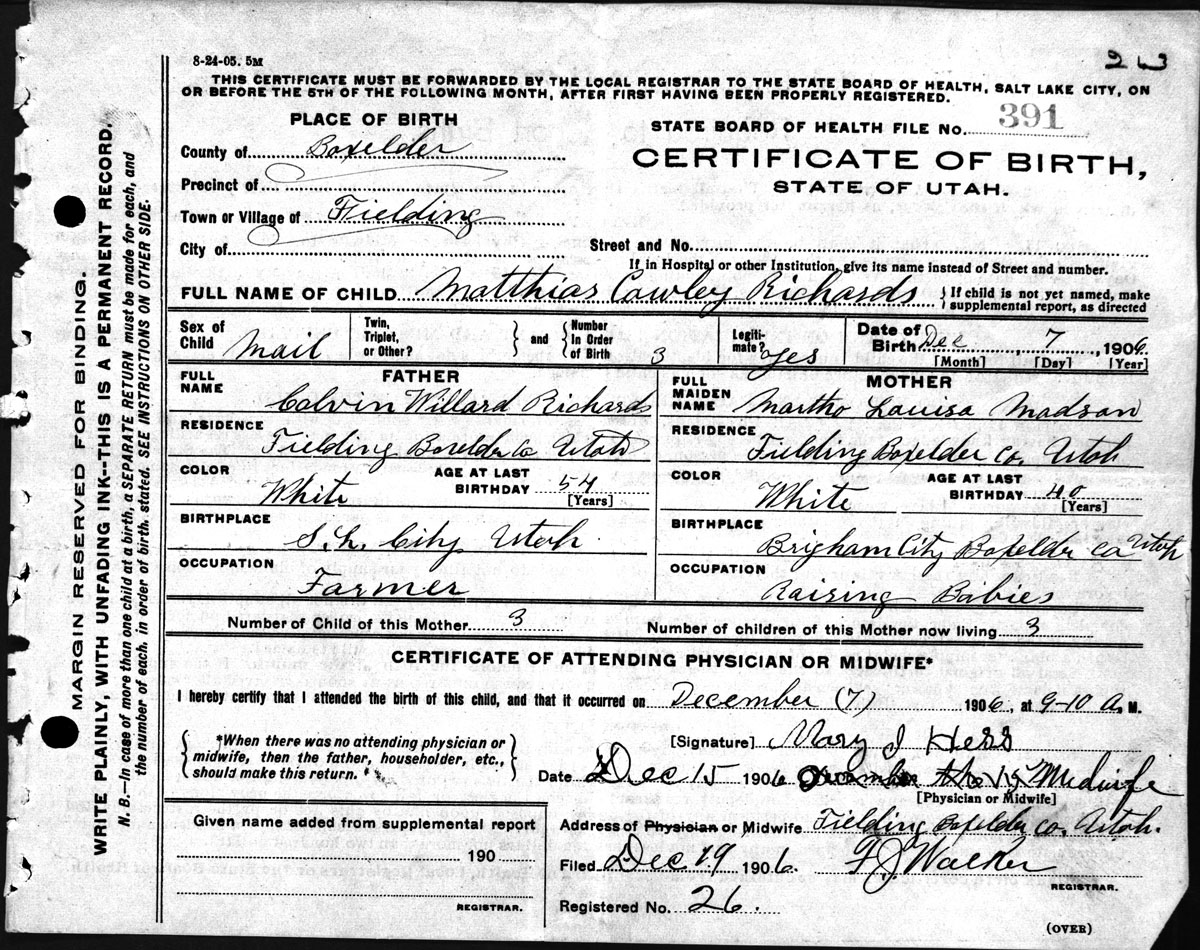 8-24-05. 5M
2 3
THIS CERTIFICATE MUST BE FORWARDED BY THE LOCAL REGISTRAR TO THE STATE BOARD OF HEALTH, SALT LAKE CITY, ON
OR BEFORE THE 5TH OF THE FOLLOWING MONTH, AFTER FIRST HAVING BEEN PROPERLY REGISTERED.
PLACE OF BIRTH
STATE BOARD OF HEALTH FILE No. 391
County of Boxelder
CERTIFICATE OF BIRTH,
STATE OF UTAH.
Precinct of
Town or Village of Fielding
City of
Street and No.
If in Hospital or other Institution, give its name instead of Street and number.
FULL NAME OF CHILD Matthias Cowley Richards } If child is not yet named, make
supplemental report, as directed
Sex of Child Mail
Twin, Triplet, or Other?
} and {
Number In Order of Birth 3
Legiti-mate? yes
Date of Birth Dec 7, 1906
[Month] [Day] [Year]
FATHER
FULL NAME Calvin Willard Richards
RESIDENCE Fielding Boxelder Co Utah
COLOR White AGE AT LAST BIRTHDAY 54
[Years]
BIRTHPLACE S. L. City Utah
OCCUPATION Farmer
MOTHER
FULL MAIDEN NAME Martha Louisa Madson
RESIDENCE Fielding Boxelder Co. Utah
COLOR White AGE AT LAST BIRTHDAY 40
[Years]
BIRTHPLACE Brigham City Boxelder Co Utah
OCCUPATION Raising Babies
Number of Child of this Mother 3
Number of children of this Mother now living 3
CERTIFICATE OF ATTENDING PHYSICIAN OR MIDWIFE*
I hereby certify that I attended the birth of this child, and that it occurred on December (7) 1906, at 9-10 A. M.
{ *When there was no attending physician or
midwife, then the father, householder, etc.,
should make this return. }
[Signature] Mary J Hess
Date Dec 15 1906 Midwife
[Physician or Midwife]
Given name added from supplemental report
190
REGISTRAR.
Address of Physician or Midwife Fielding Boxelder Co. Utah.
Filed Dec 19 1906. F J Walker
REGISTRAR.
Registered No. 26.
(OVER)
MARGIN RESERVED FOR BINDING.
WRITE PLAINLY, WITH UNFADING INK--THIS IS A PERMANENT RECORD.
N. B.—In case of more than one child at a birth, a SEPARATE RETURN must be made for each, and
the number of each, in order of birth, stated. SEE INSTRUCTIONS ON OTHER SIDE.